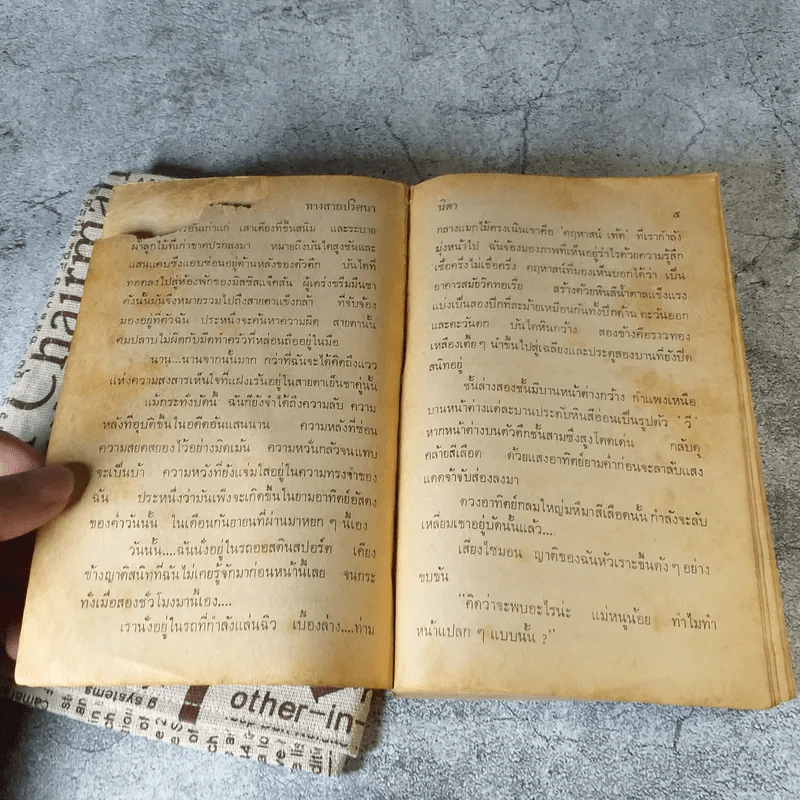 ทางสายปริศนา
ร้อนเก่าแก่ เสาเตียงที่ขึ้นสนิม และระบาย
ผ้าลูกไม้ที่เก่าขาดปรกลงมา หมายถึงบันไดสูงชันและ
แสนแคบซึ่งแอบซ่อนอยู่ด้านหลังของตัวตึก บันไดที่
ทอดลงไปสู่ห้องพักของมิสซิสแจ๊คสัน ผู้เคร่งขรึมมึนชา
ดังนั้นมันจึงหมายรวมไปถึงสายตาแข็งกล้า ที่จับจ้อง
มองอยู่ที่ตัวฉัน ประหนึ่งจะค้นหาความผิด สายตานั้น
คมปลาบไม่ผิดกับมีดทำครัวที่หล่อนถืออยู่ในมือ
นาน...นานจากนั้นมาก กว่าที่ฉันจะได้คิดถึงแวว
แห่งความสงสารเห็นใจที่แฝงเร้นอยู่ในสายตาเย็นชาคู่นั้น
แม้กระทั่งบัดนี้ ฉันก็ยังจำได้ถึงความลับ ความ
หลังที่อุบัติขึ้นในอดีตอันแสนนาน ความหลังที่ซ่อน
ความสยดสยองไว้อย่างมิดเม้น ความหวั่นกลัวจนแทบ
จะเป็นบ้า ความหวังที่ยังแจ่มใสอยู่ในความทรงจำของ
ฉัน ประหนึ่งว่ามันเพิ่งจะเกิดขึ้นในยามอาทิตย์อัสดง
ของค่ำวันนั้น ในเดือนกันยายนที่ผ่านมาหยก ๆ นี้เอง
วันนั้น....ฉันนั่งอยู่ในรถออสตินสปอร์ต เคียง
ข้างญาติสนิทที่ฉันไม่เคยรู้จักมาก่อนหน้านี้เลย จนกระ
ทั่งเมื่อสองชั่วโมงมานี้เอง....
เรานั่งอยู่ในรถที่กำลังแล่นฉิว เบื้องล่าง....ท่าม
นิดา
๕
กลางแมกไม้ตรงเนินเขาคือ 'คฤหาสน์ เท้ด' ที่เรากำลัง
มุ่งหน้าไป ฉันจ้องมองภาพที่เห็นอยู่รำไรด้วยความรู้สึก
เชื่อครึ่งไม่เชื่อครึ่ง คฤหาสน์ที่มองเห็นบอกได้ว่า เป็น
อาคารสมัยวิคทอเรีย สร้างด้วยหินสีน้ำตาลแข็งแรง
แบ่งเป็นสองปีกที่ละม้ายเหมือนกันทั้งปีกด้าน ตะวันออก
และตะวันตก บันไดหินกว้าง สองข้างคือราวทอง
เหลืองเตี้ย ๆ นำขึ้นไปสู่เฉลียงและประตูสองบานที่ยังปิด
สนิทอยู่
ชั้นล่างสองชั้นมีบานหน้าต่างกว้าง กำแพงเหนือ
บานหน้าต่างแต่ละบานประดับหินสีอ่อนเป็นรูปตัว 'วี'
หากหน้าต่างบนตัวตึกชั้นสามซึ่งสูงโดดเด่น กลับดู
คล้ายสีเลือด ด้วยแสงอาทิตย์ยามค่ำก่อนจะลาลับแสง
แดดจ้าจับส่องลงมา
ดวงอาทิตย์กลมใหญ่มหึมาสีเลือดนั้น กำลังจะลับ
เหลี่ยมเขาอยู่บัดนั้นแล้ว....
เสียงไซมอน ญาติของฉันหัวเราะขึ้นดัง ๆ อย่าง
ขบขัน
"คิดว่าจะพบอะไรน่ะ แม่หนูน้อย ทำไมทำ
หน้าแปลก ๆ แบบนั้น ?"
Chairma
other-in-
g systems